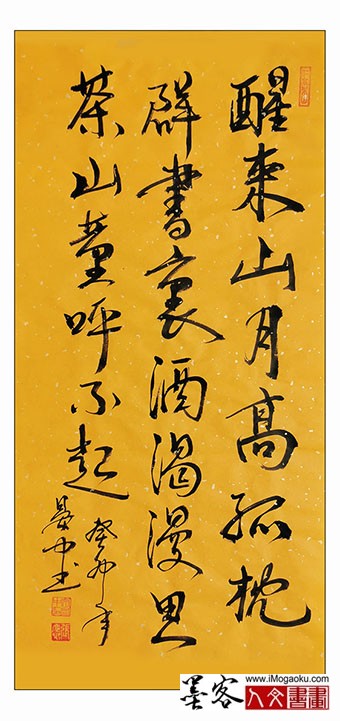 醒來山月高孤枕
群書裏酒渴漫思
茶山童呼不起
癸卯年
书
墨客
www.iMogaoku.com
人文書畫